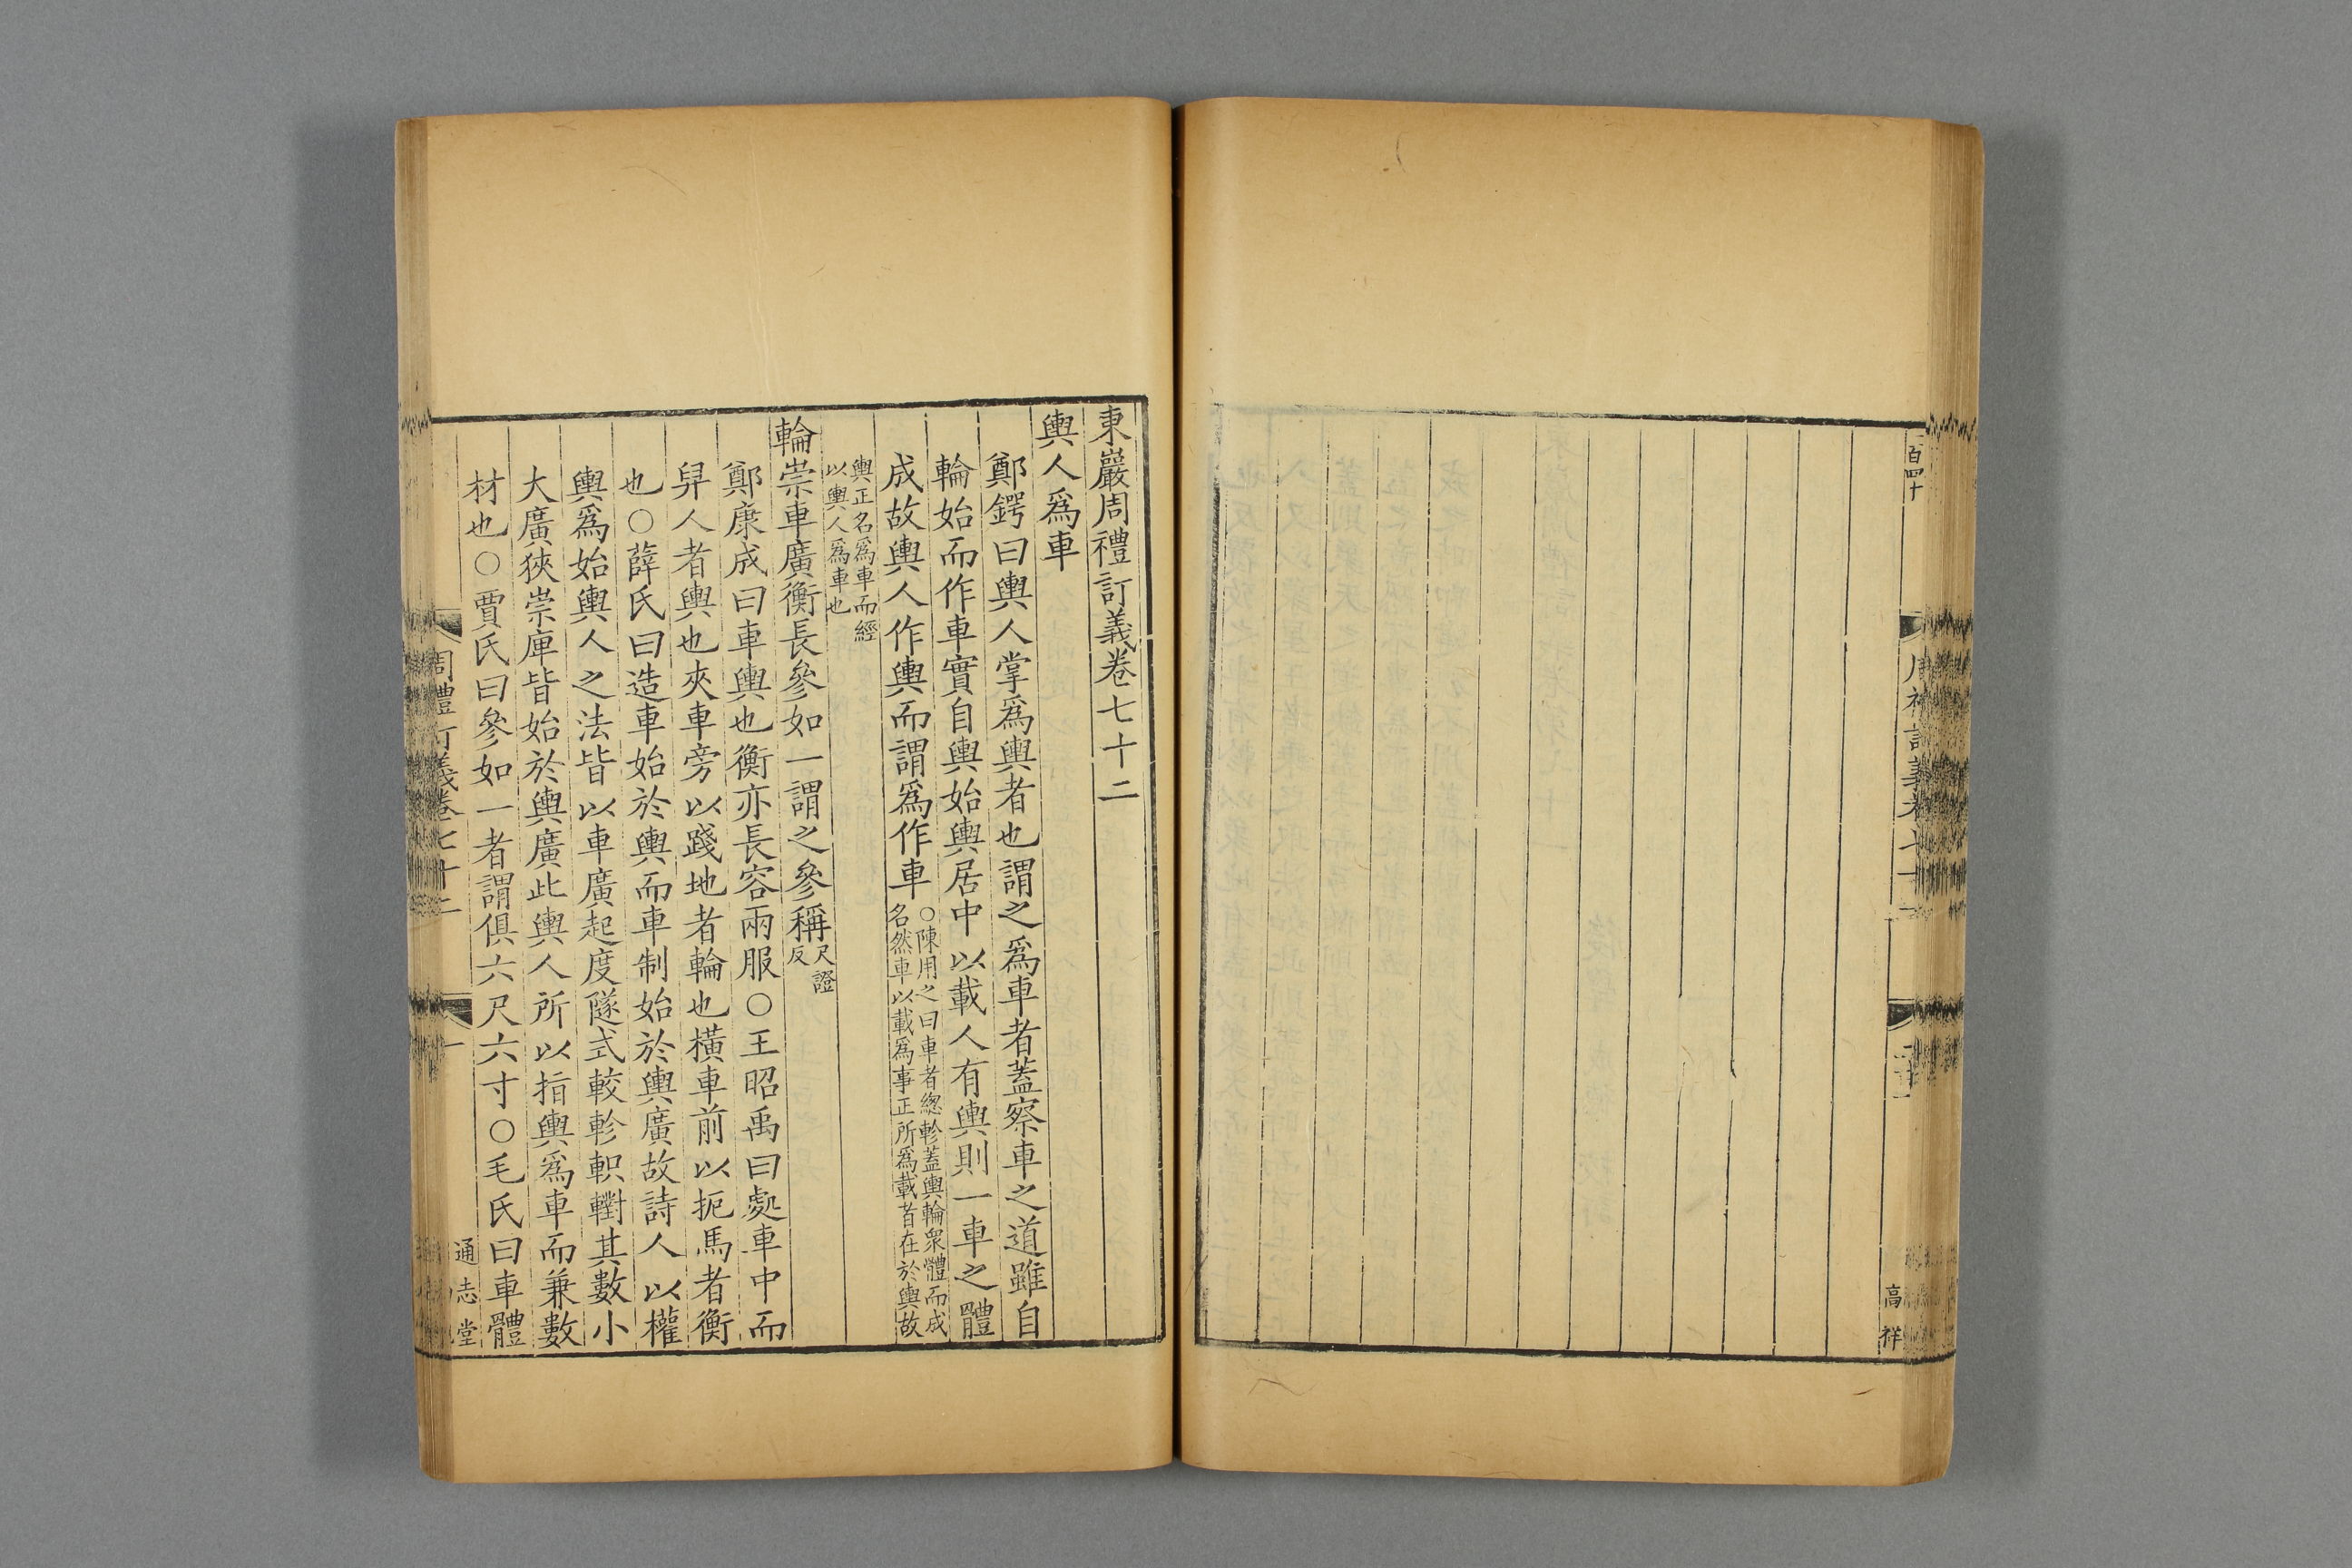 百四十
高祥
東巖周禮訂義卷七十二
輿人爲車
鄭鍔曰輿人掌爲輿者也謂之爲車者蓋察車之道雖自
輪始而作車實自輿始輿居中以載人有輿則一車之體
成故輿人作輿而謂爲作車
○陳用之曰車者總軫蓋輿輪衆體而成
名然車以載爲事正所爲載者在於輿故
輿正名爲車而經
以輿人爲車也
輪崇車廣衡長參如一謂之參稱
尺證
反
鄭康成曰車輿也衡亦長容兩服○王昭禹曰處車中而
舁人者輿也夾車旁以踐地者輪也橫車前以扼馬者衡
也○薛氏曰造車始於輿而車制始於輿廣故詩人以權
輿爲始輿人之法皆以車廣起度隧式較軫軹轛其數小
大廣狹崇庳皆始於輿廣此輿人所以指輿爲車而兼數
材也○賈氏曰參如一者謂俱六尺六寸○毛氏曰車體
周禮訂義卷七十二
一
通志堂